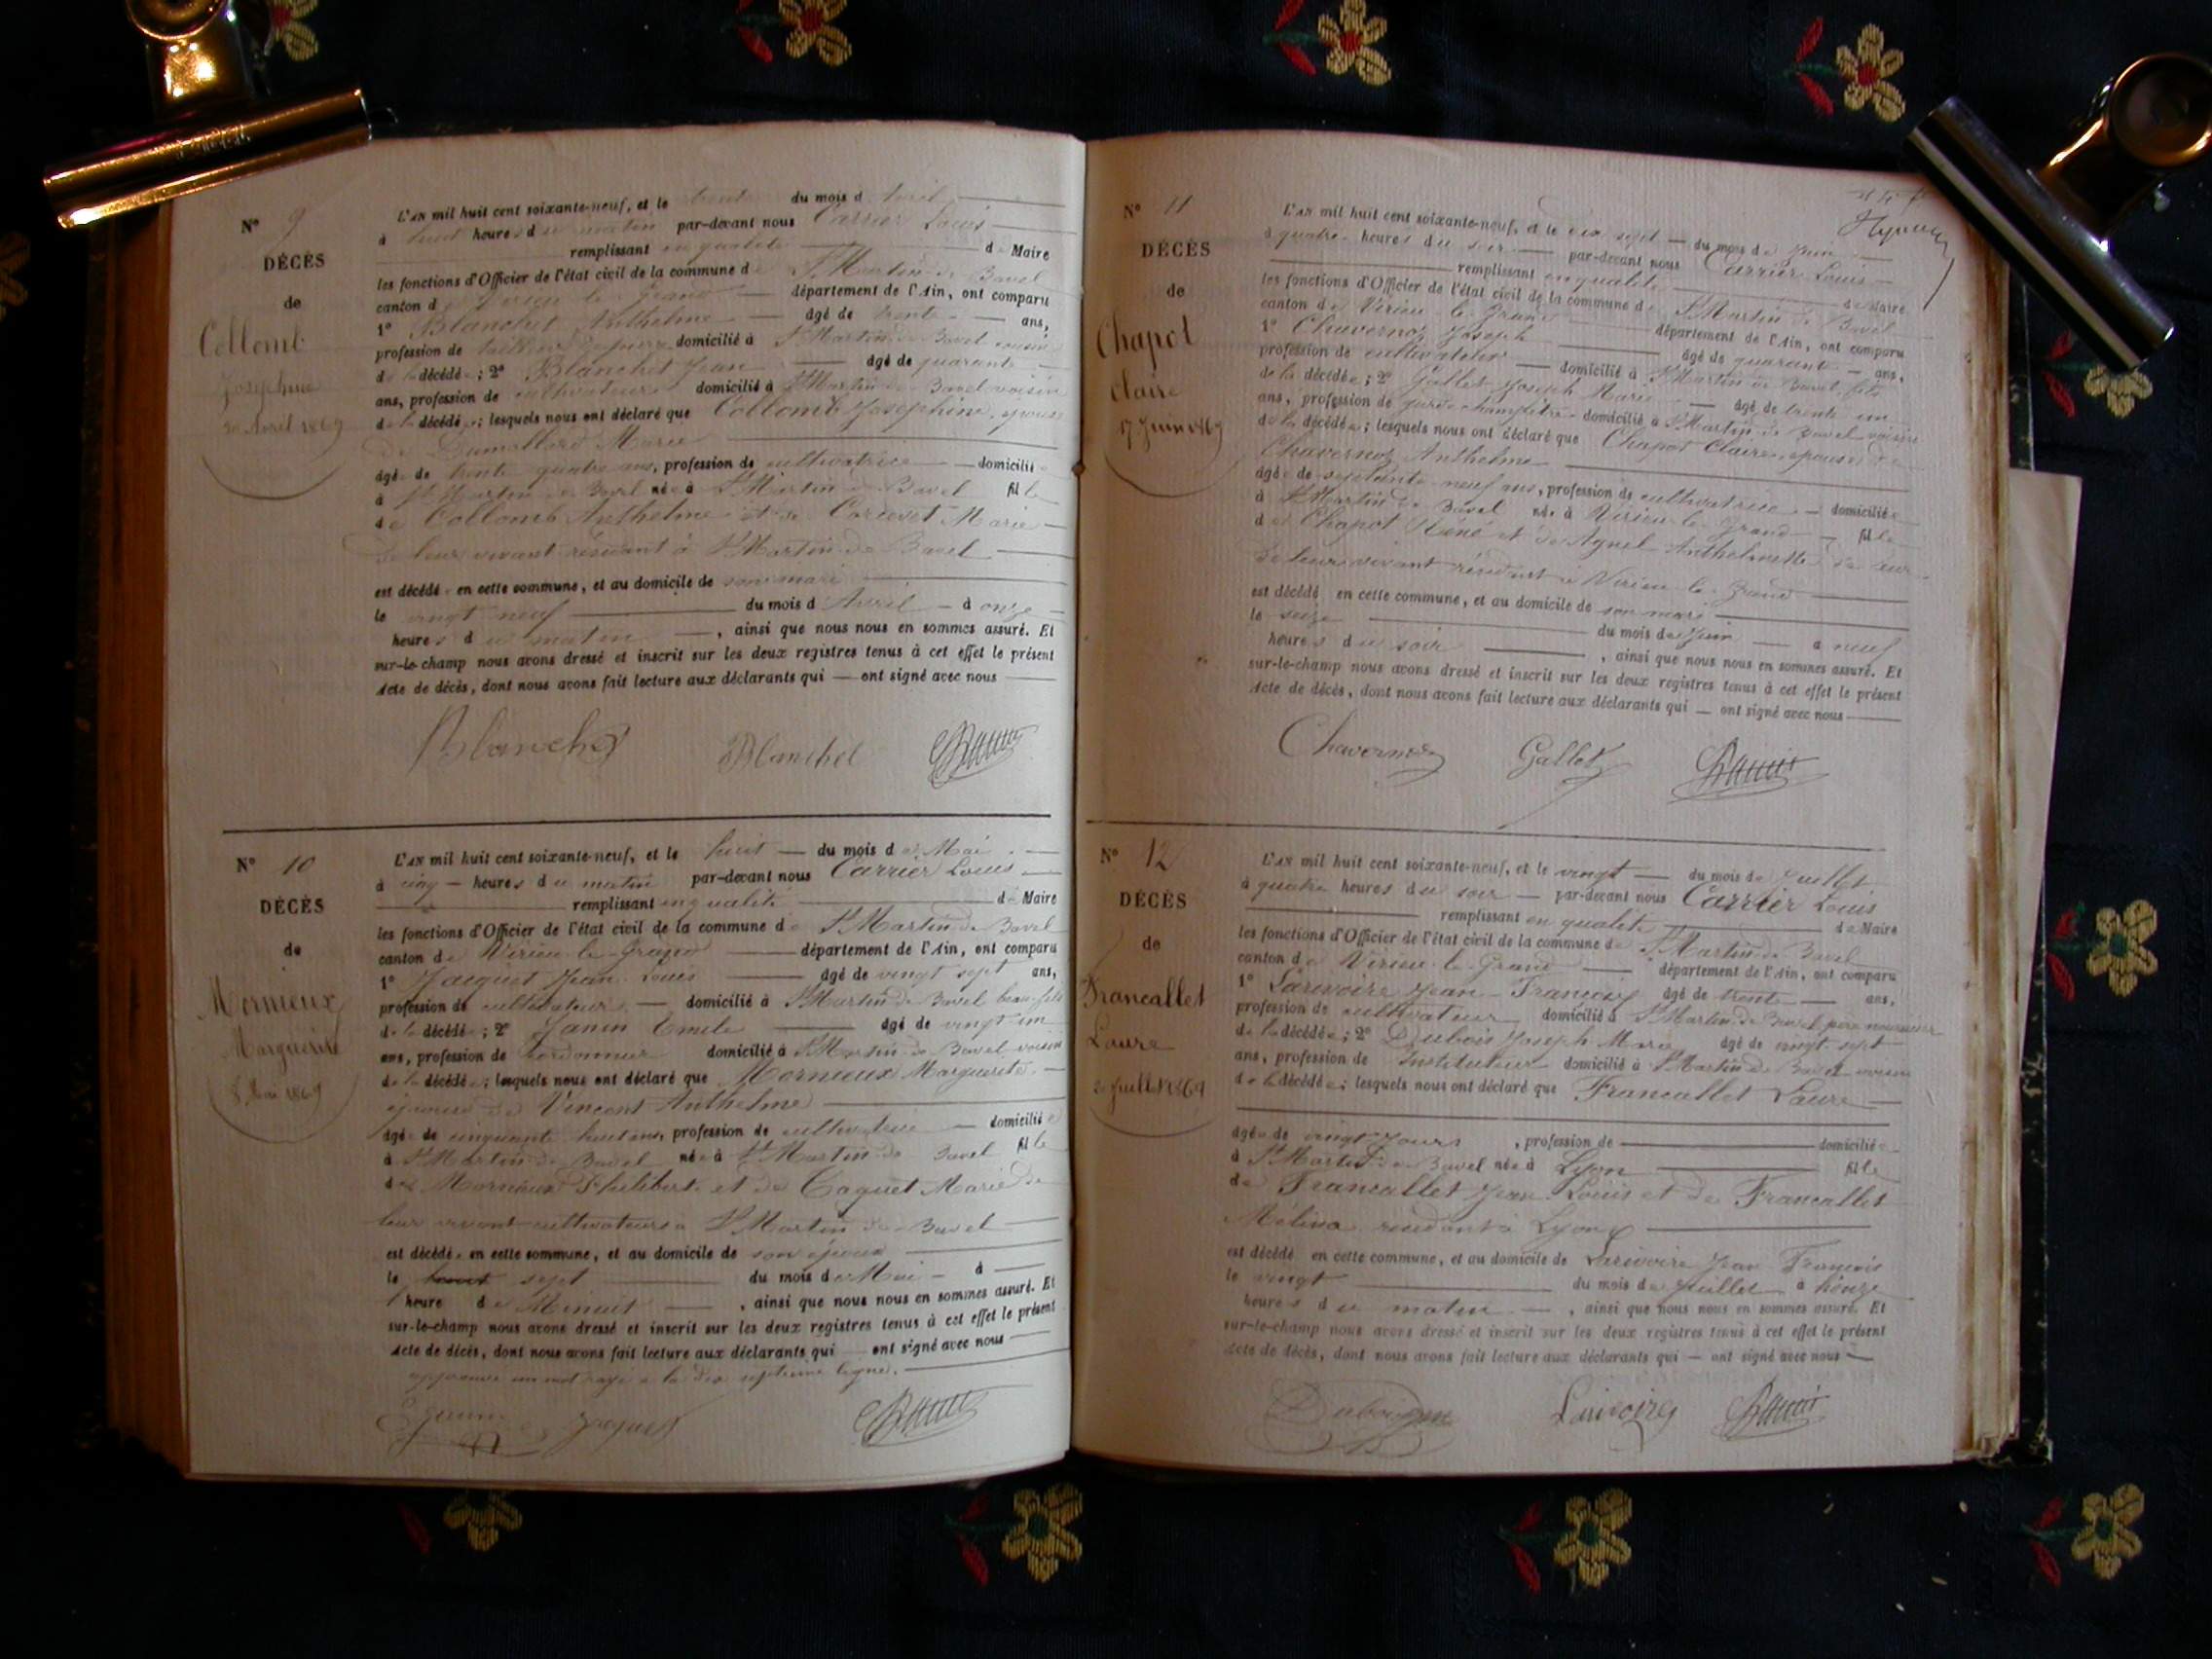 N° 9
DÉCÈS
de
Collomb
Joséphine
30 Avril 1869
L'AN mil huit cent soixante-neuf, et le trente du mois d'Avril
à huit heures du matin par-devant nous Carrier Louis
remplissant en qualité de Maire
les fonctions d'Officier de l'état civil de la commune de St Martin de Bavel
canton de Virieu le Grand département de l'Ain, ont comparu
1° Blanchet Anthelme âgé de trente ans,
profession de tailleur de pierre domicilié à St Martin de Bavel cousin
de la décédée; 2° Blanchet Jean âgé de quarante
ans, profession de cultivateur domicilié à St Martin de Bavel voisin
de la décédée; lesquels nous ont déclaré que Collomb Joséphine, épouse
de Dumollard Marie
âgée de trente quatre ans, profession de cultivatrice domiciliée
à St Martin de Bavel née à St Martin de Bavel fille
de Collomb Anthelme et de Marie
de leur vivant résidant à St Martin de Bavel
est décédée en cette commune, et au domicile de son mari
le vingt neuf du mois d'Avril à onze
heures du matin, ainsi que nous nous en sommes assuré. Et
sur-le-champ nous avons dressé et inscrit sur les deux registres tenus à cet effet le présent
Acte de décès, dont nous avons fait lecture aux déclarants qui ont signé avec nous
Blanchet Blanchet
N° 10
DÉCÈS
de
Mornieux
Marguerite
8 Mai 1869
L'AN mil huit cent soixante-neuf, et le huit du mois de Mai
à cinq heures du matin par-devant nous Carrier Louis
remplissant en qualité de Maire
les fonctions d'Officier de l'état civil de la commune de St Martin de Bavel
canton de Virieu le Grand département de l'Ain, ont comparu
1° Jacquet Jean Louis âgé de vingt sept ans,
profession de cultivateur domicilié à St Martin de Bavel beau-fils
de la décédée; 2° Janin Emile âgé de vingt un
ans, profession de cordonnier domicilié à St Martin de Bavel voisin
de la décédée; lesquels nous ont déclaré que Mornieux Marguerite
épouse de Vincent Anthelme
âgée de cinquante huit ans, profession de cultivatrice domiciliée
à St Martin de Bavel née à St Martin de Bavel fille
de Mornieux Philibert et de Caquet Marie de
leur vivant cultivateurs à St Martin de Bavel
est décédée en cette commune, et au domicile de son époux
le sept du mois de Mai à
l'heure de Minuit, ainsi que nous nous en sommes assuré. Et
sur-le-champ nous avons dressé et inscrit sur les deux registres tenus à cet effet le présent
Acte de décès, dont nous avons fait lecture aux déclarants qui ont signé avec nous
approuvé un mot rayé à la dix septième ligne.
Jacquet
N° 11
DÉCÈS
de
Chapot
Claire
17 Juin 1869
L'AN mil huit cent soixante-neuf, et le dix sept du mois de Juin
à quatre heures du soir par-devant nous Carrier Louis
remplissant en qualité de Maire
les fonctions d'Officier de l'état civil de la commune de St Martin de Bavel
canton de Virieu le Grand département de l'Ain, ont comparu
1° Chavernoz Joseph âgé de quarante ans,
profession de cultivateur domicilié à St Martin de Bavel fils
de la décédée; 2° Gallet Joseph Marie âgé de trente un
ans, profession de garde champêtre domicilié à St Martin de Bavel voisin
de la décédée; lesquels nous ont déclaré que Chapot Claire, épouse de
Chavernoz Anthelme
âgée de septante neuf ans, profession de cultivatrice domiciliée
à St Martin de Bavel née à Virieu le Grand fille
de Chapot Réné et de Aynel Anthelmette de leur
de leur vivant résidant à Virieu le Grand
est décédé en cette commune, et au domicile de son mari
le seize du mois de Juin à neuf
heures du soir, ainsi que nous nous en sommes assuré. Et
sur-le-champ nous avons dressé et inscrit sur les deux registres tenus à cet effet le présent
Acte de décès, dont nous avons fait lecture aux déclarants qui ont signé avec nous
Chavernoz Gallet
N° 12
DÉCÈS
de
Francallet
Laure
20 Juillet 1869
L'AN mil huit cent soixante-neuf, et le vingt du mois de Juillet
à quatre heures du soir par-devant nous Carrier Louis
remplissant en qualité de Maire
les fonctions d'Officier de l'état civil de la commune de St Martin de Bavel
canton de Virieu le Grand département de l'Ain, ont comparu
1° Larivoire Jean François âgé de trente ans,
profession de cultivateur domicilié à St Martin de Bavel père nourricier
de la décédée; 2° Dubois Joseph Marie âgé de vingt sept
ans, profession de Instituteur domicilié à St Martin de Bavel voisin
de la décédée; lesquels nous ont déclaré que Francallet Laure
âgée de vingt jours, profession de domiciliée
à St Martin de Bavel née à Lyon fille
de Francallet Jean Louis et de Francallet
Mélina résidant à Lyon
est décédé en cette commune, et au domicile de Larivoire Jean François
le vingt du mois de Juillet à honze
heures du matin, ainsi que nous nous en sommes assuré. Et
sur-le-champ nous avons dressé et inscrit sur les deux registres tenus à cet effet le présent
Acte de décès, dont nous avons fait lecture aux déclarants qui ont signé avec nous
Larivoire